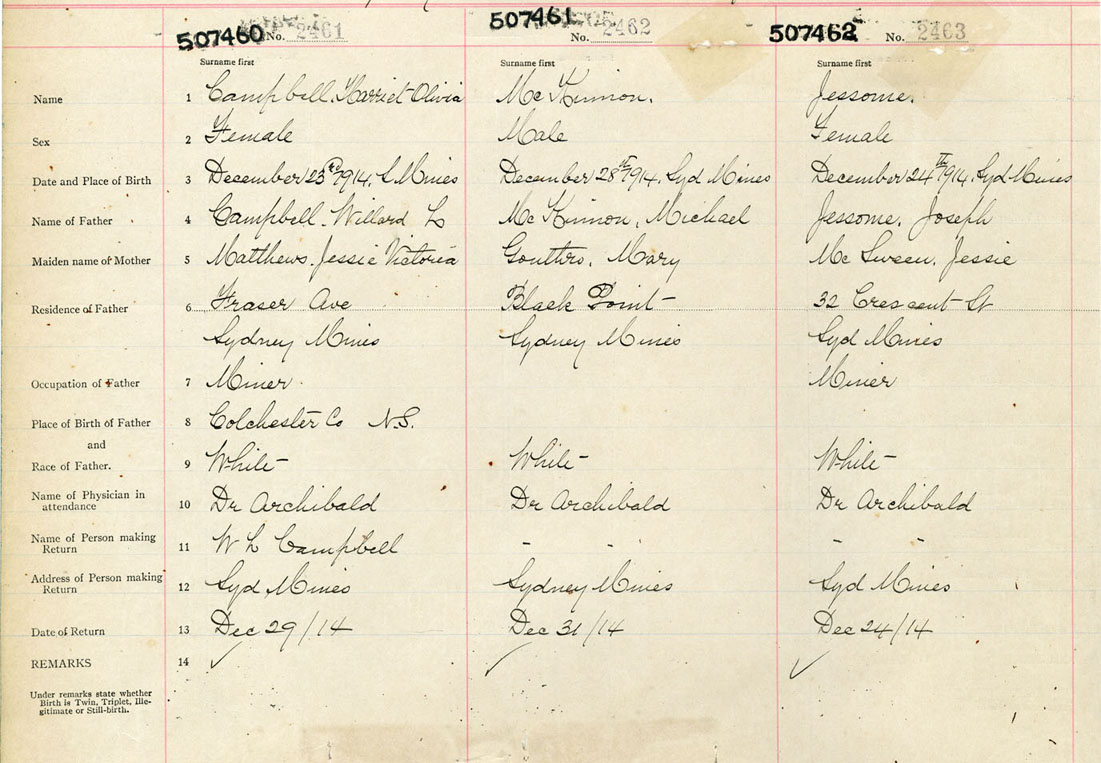 507460 No. 2461 507461 No. 2462 507462 No. 2463
Surname first Surname first Surname first
Name 1 Campbell. Harriet Olivia Mc Kinnon. Jessome.
Sex 2 Female Male Female
Date and Place of Birth 3 December 23rd 1914. S. Mines December 28th 1914. Syd Mines December 24th 1914. Syd Mines
Name of Father 4 Campbell. Willard L Mc Kinnon, Michael Jessome. Joseph
Maiden name of Mother 5 Matthews. Jessie Victoria Gouthro. Mary Mc Sween. Jessie
Residence of Father 6 Fraser Ave Black Point 32 Crescent St
Sydney Mines Sydney Mines Syd Mines
Occupation of Father 7 Miner Miner
Place of Birth of Father 8 Colchester Co N.S.
and
Race of Father. 9 White White White
Name of Physician in
attendance 10 Dr Archibald Dr Archibald Dr Archibald
Name of Person making
Return 11 W L Campbell - - - -
Address of Person making
Return 12 Syd Mines Sydney Mines Syd Mines
Date of Return 13 Dec 29/14 Dec 31/14 Dec 24/14
REMARKS 14 ✓ ✓ ✓
Under remarks state whether
Birth is Twin, Triplet, Ille-
gitimate or Still-birth.